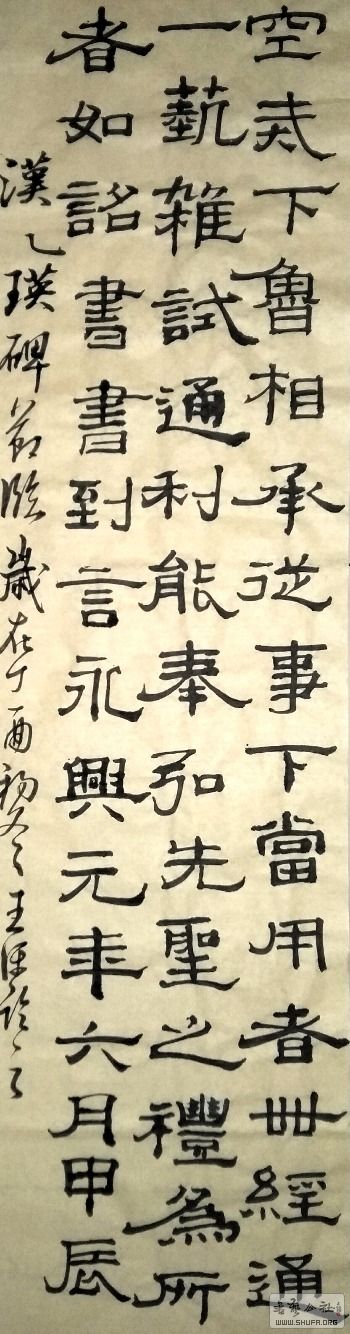 空戒下魯相承從事下當用者卌經通
一蓺雜試通利能奉弘先聖之禮為所
者如詔書書到言永興元年六月甲辰
漢乙瑛碑節臨歲在丁酉初冬王
書藝公社
WWW.SHUFA.ORG